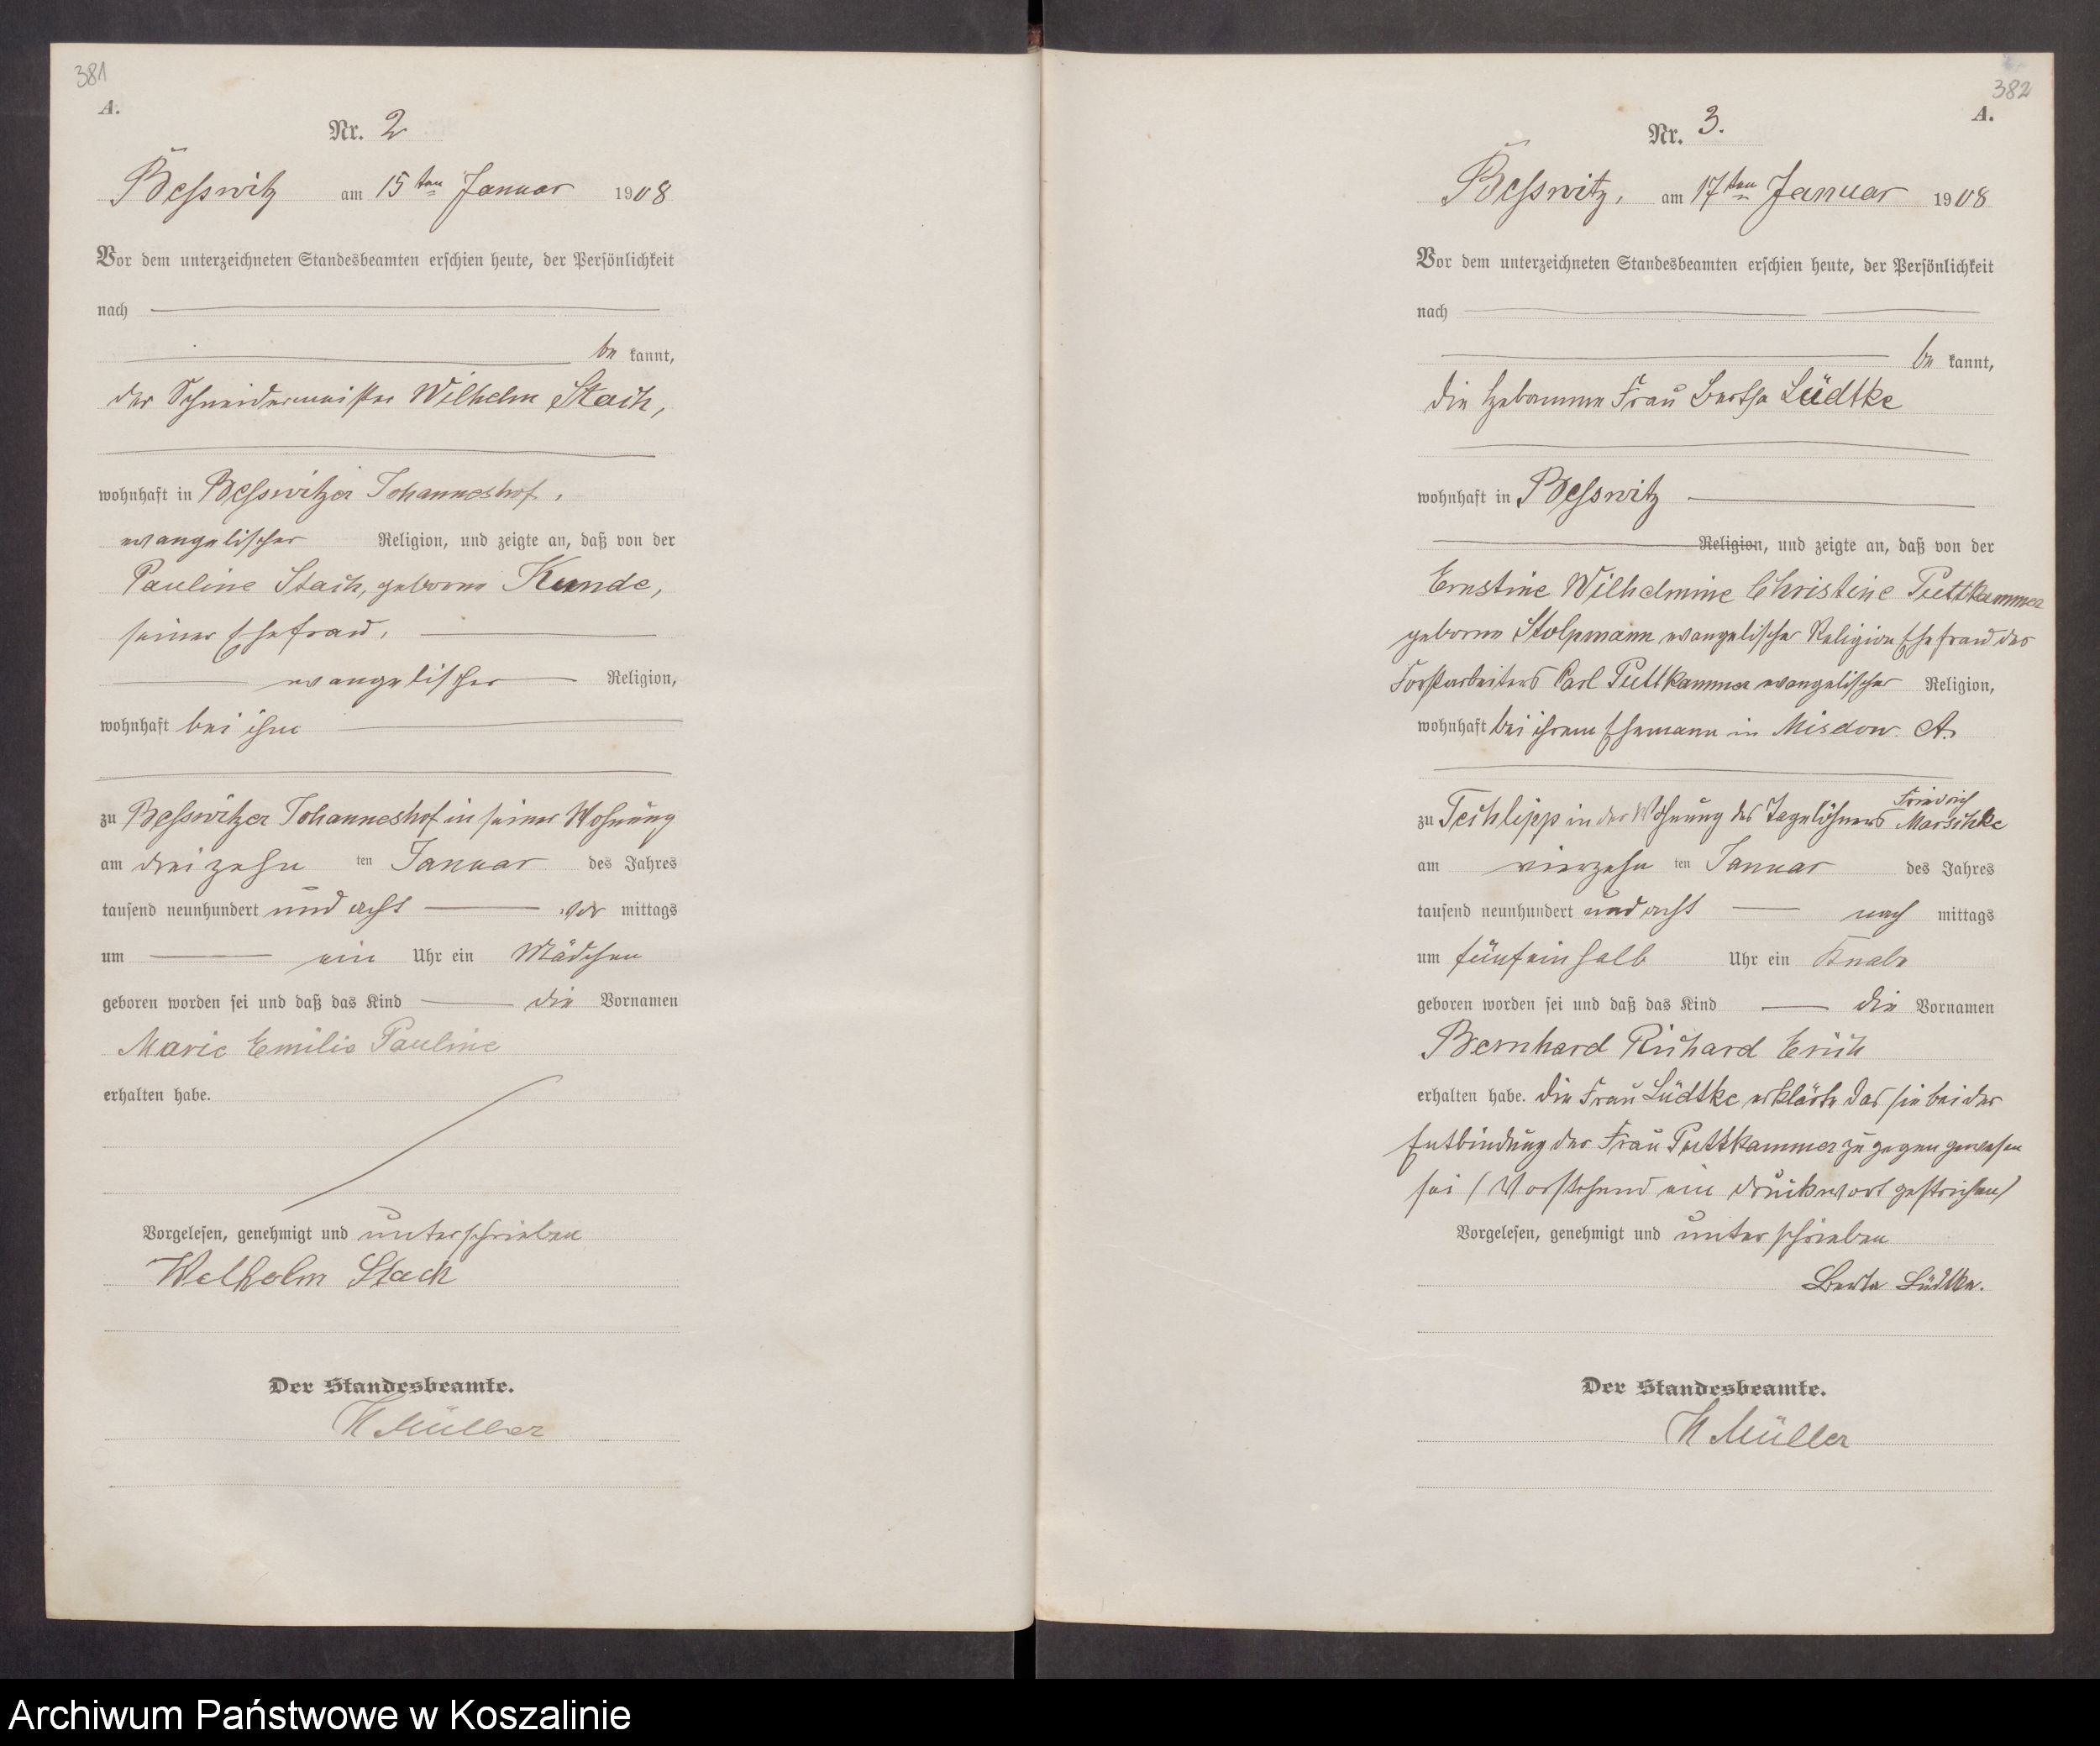 381
A.
Nr. 2
Besswitz am 15ten Januar 1908
Vor dem unterzeichneten Standesbeamten erschien heute, der Persönlichkeit
nach
be kannt,
der Schneidermeister Wilhelm Stach,
wohnhaft in Besswitzer Johanneshof,
evangelischer Religion, und zeigte an, daß von der
Pauline Stach, geborne Kunde,
seiner Ehefrau,
evangelischer Religion,
wohnhaft bei ihm
zu Besswitzer Johanneshof in seiner Wohnung
am dreizehn ten Januar des Jahres
tausend neunhundert und acht vor mittags
um ein Uhr ein Mädchen
geboren worden sei und daß das Kind die Vornamen
Marie Emilie Pauline
erhalten habe.
Vorgelesen, genehmigt und unterschrieben
Welhelm Stach
Der Standesbeamte.
Müller
382
A.
Nr. 3.
Besswitz, am 17ten Januar 1908
Vor dem unterzeichneten Standesbeamten erschien heute, der Persönlichkeit
nach
be kannt,
die Hebamme Frau Bertha Lüdtke
wohnhaft in Besswitz
Religion, und zeigte an, daß von der
Ernstine Wilhelmine Christine Puttkammer
geborne Stolpmann evangelischer Religion Ehefrau des
Forstarbeiters Carl Puttkammer evangelischer Religion,
wohnhaft bei ihrem Ehemann in Misdow. A.
zu Techlipp in der Wohnung des Tagelöhners Friedrich Marschke
am vierzehn ten Januar des Jahres
tausend neunhundert und acht nach mittags
um fünfeinhalb Uhr ein Knabe
geboren worden sei und daß das Kind die Vornamen
Bernhard Richard Erich
erhalten habe. die Frau Lüdtke erklärte das sie bei der
Entbindung der Frau Puttkammer zu gegen gewesen
sei (Vorstehend ein Druckwort gestrichen)
Vorgelesen, genehmigt und unterschrieben
Berta Lüdtke.
Der Standesbeamte.
Müller
Archiwum Państwowe w Koszalinie